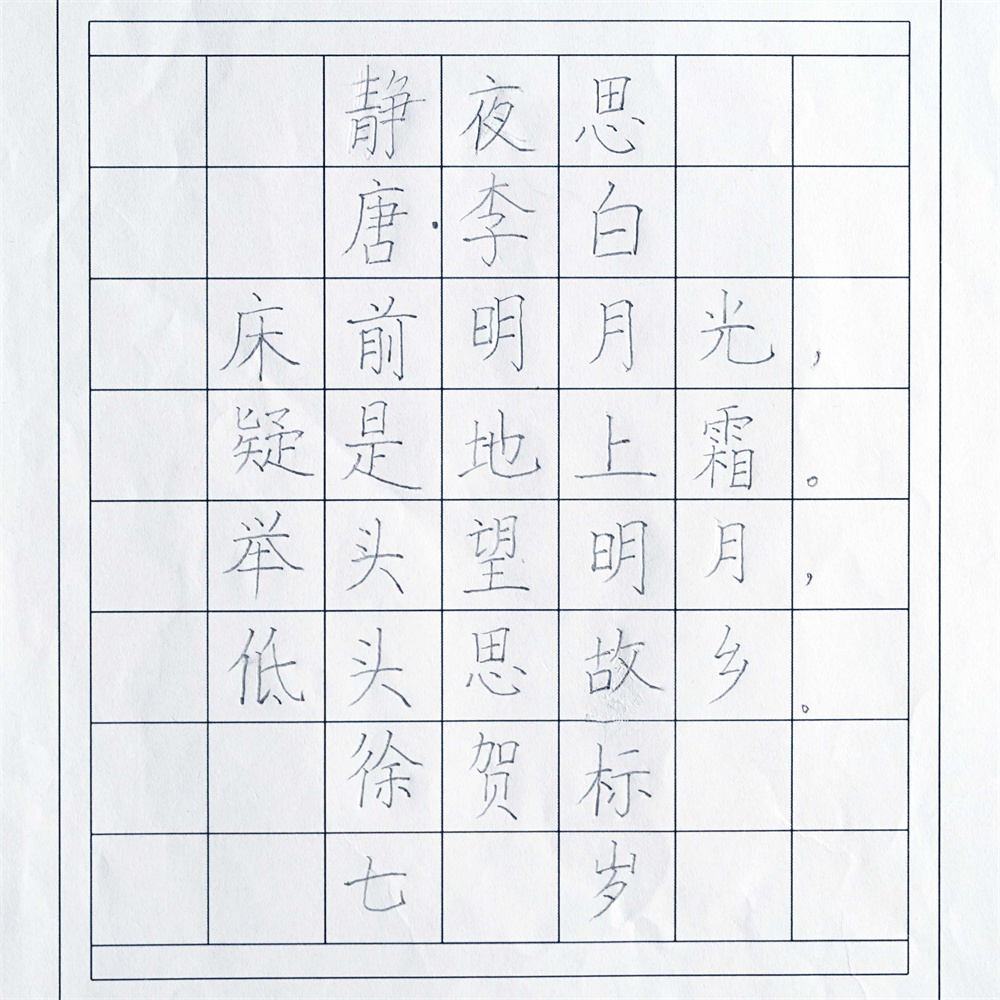 静夜思
唐·李白
床前明月光，
疑是地上霜。
举头望明月，
低头思故乡。
徐贺标
七岁